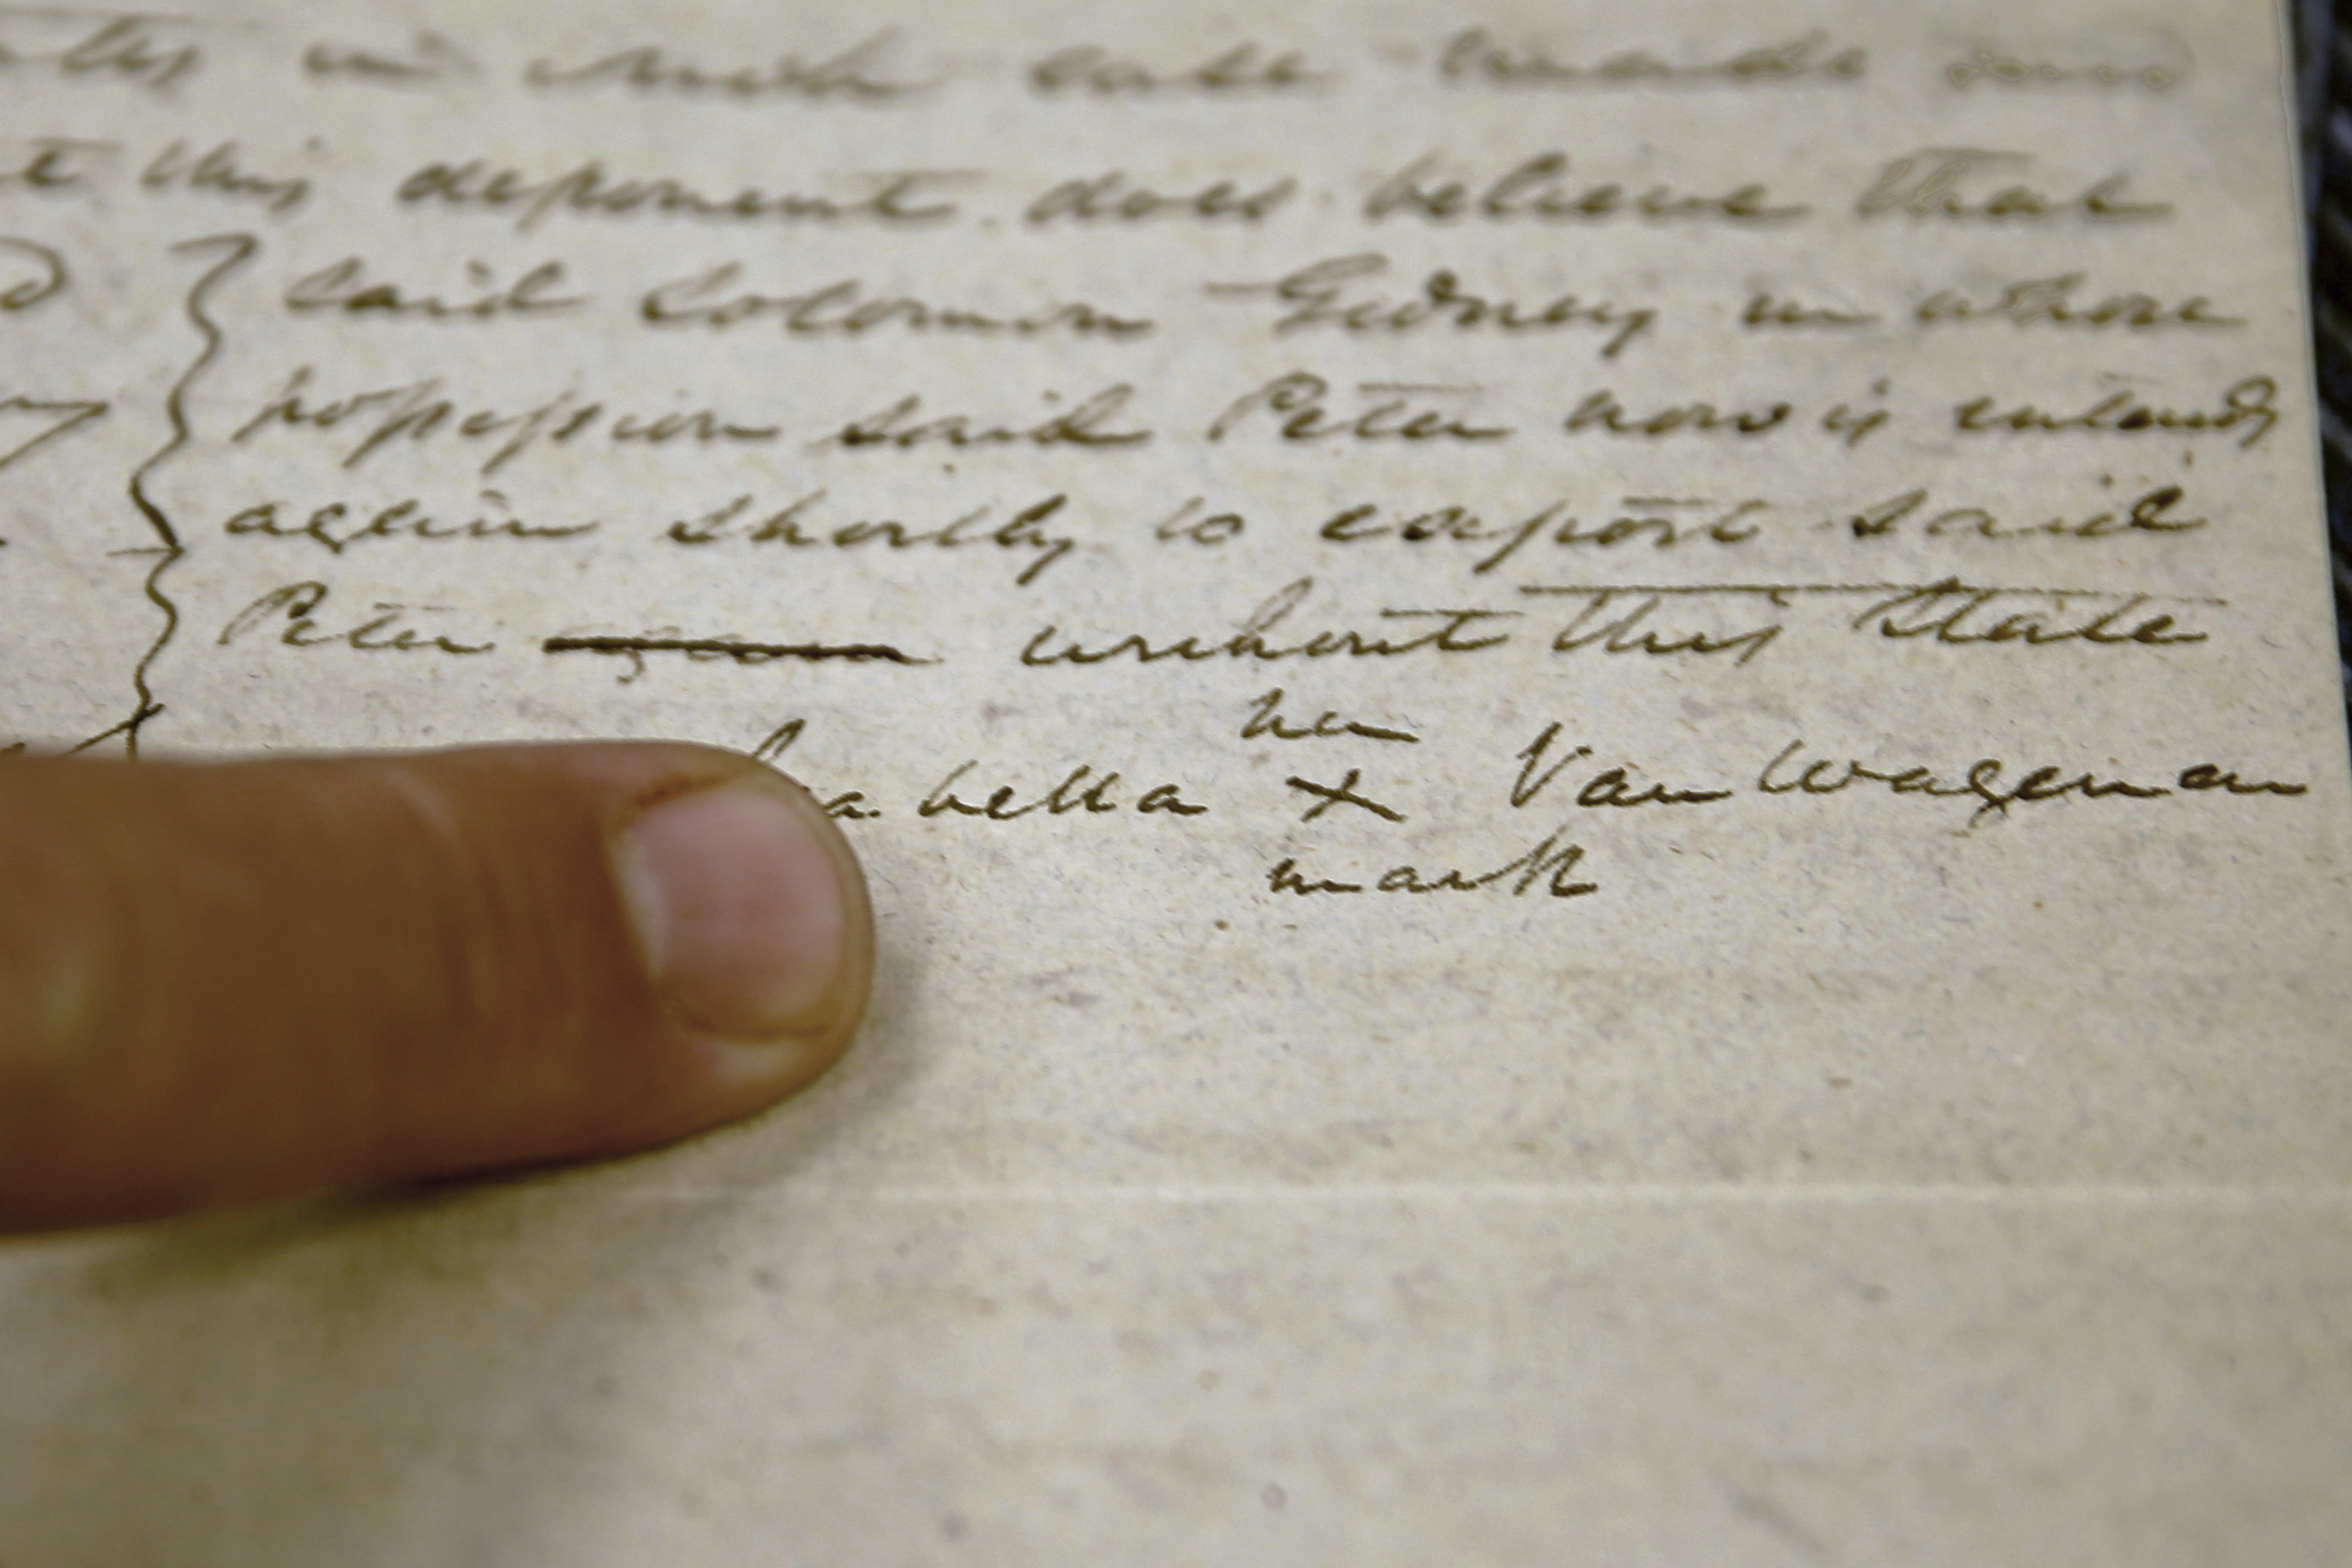 in such case made and
this deponent does believe that
said Solomon Gidney in whose
possession said Peter now is intends
again shortly to export said
Peter without this State
her
bella X Van Wagenan
mark